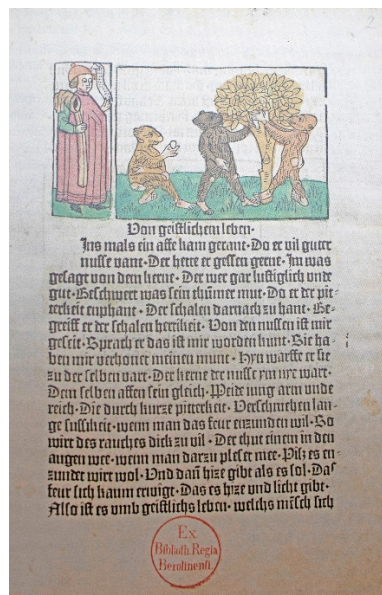 2
Von geistlichem leben·
Ins mals ein affe kam gerant· Do er vil guter
nusse vant· Der hette er gessen gerne· Im was
gesagt von dem kerne· Der wer gar lustiglich vnde
gut· Beschwert was sein thumer mut· Do er der pit-
terkeit enphant· Der schalen darnach zu hant· Be-
greiff er der schalen herrikeit· Von den nussen ist mir
geseit· Sprach er das ist mir worden kunt· Sie ha-
ben mir verhonet meinen munt· Hyn warffe er sie
zu der selben vart· Der kerne der nusse ym nye wart·
Dem selben affen sein gleich· Peide iung arm vnde
reich· Die durch kurze pitterkeit· Verschmehen lan-
ge sussikeit· wenn man das feur enzunden wil· So
wirt des rauches dick zu vil· Der thut einem in den
augen wee· wenn man darzu plest me· Pisz es en-
zundet wirt wol· Vnd dañ hize gibt als es sol· Das
feur sich kaum erwigt· Das es hize vnd licht gibt·
Also ist es vmb geistlichs leben· welchs mēsch sich
Ex
Biblioth. Regia
Berolinensi.